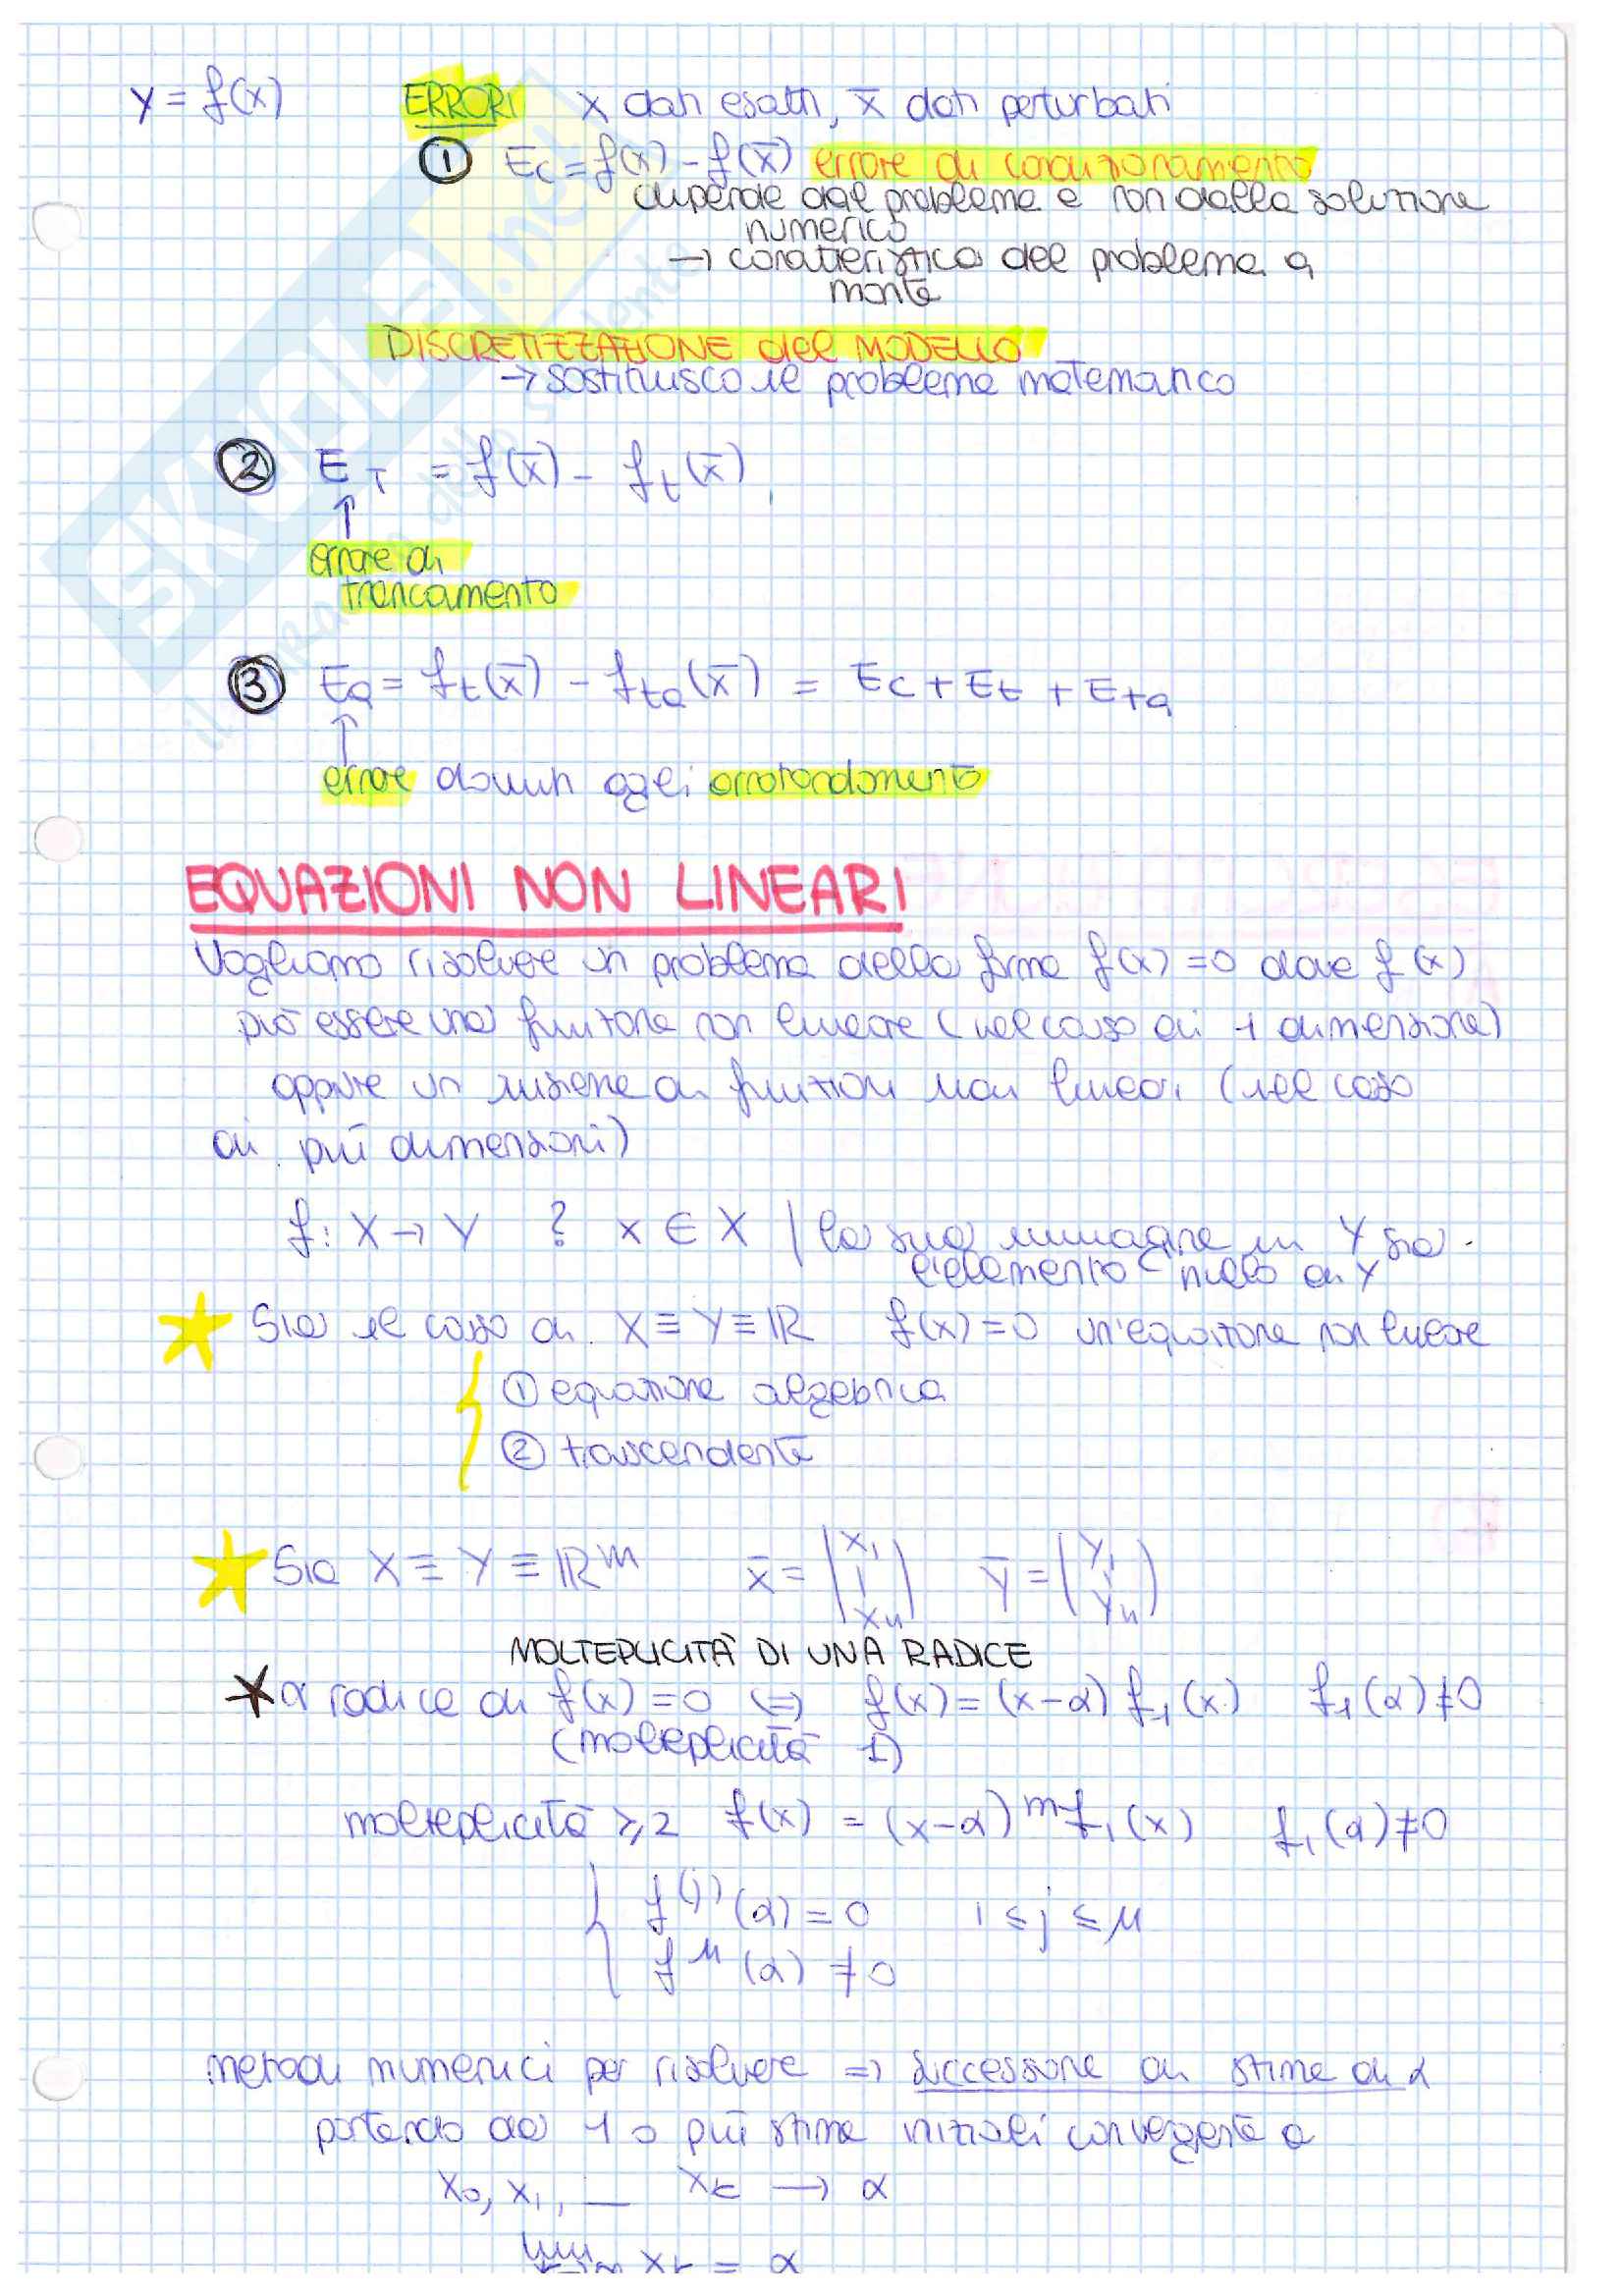 y = f(x) ERRORI x dati esatti, x̄ dati perturbati
① Ec = f(x) - f(x̄) errore di condizionamento
dipende dal problema e non dalla soluzione
numerica
→ caratteristica del problema a
monte
DISCRETIZZAZIONE del MODELLO
→ sostituisco il problema matematico
② E_T = f(x̄) - f_t(x̄)
↑
errore di
troncamento
③ Ea = f_t(x̄) - f_ta(x̄) = Ec + Et + Eta
↑
errore dovuti agli arrotondamenti
EQUAZIONI NON LINEARI
Vogliamo risolvere un problema della forma f(x) = 0 dove f(x)
può essere una funzione non lineare (nel caso di 1 dimensione)
oppure un insieme di funzioni non lineari (nel caso
di più dimensioni)
f: X → Y ? x ∈ X | la sua immagine in Y sia
l'elemento nullo di Y
Sia il caso di X ≡ Y ≡ ℝ f(x) = 0 un'equazione non lineare
① equazione algebrica
② trascendente
Sia X ≡ Y ≡ ℝᵐ x̄ = (x₁ | xₙ) ȳ = (y₁ | yₙ)
MOLTEPLICITÀ DI UNA RADICE
α radice di f(x) = 0 ⇔ f(x) = (x-α) f₁(x) f₁(α) ≠ 0
(molteplicità 1)
molteplicità ≥ 2 f(x) = (x-α)ᵐ f₁(x) f₁(α) ≠ 0
{ f⁽ʲ⁾(α) = 0 1 ≤ j ≤ μ
f^μ(α) ≠ 0
metodi numerici per risolvere ⇒ successione di stime di α
partendo da 1 o più stime iniziali convergente a
x₀, x₁, — x_k → α
lim x_k = α
SKUOLA.net